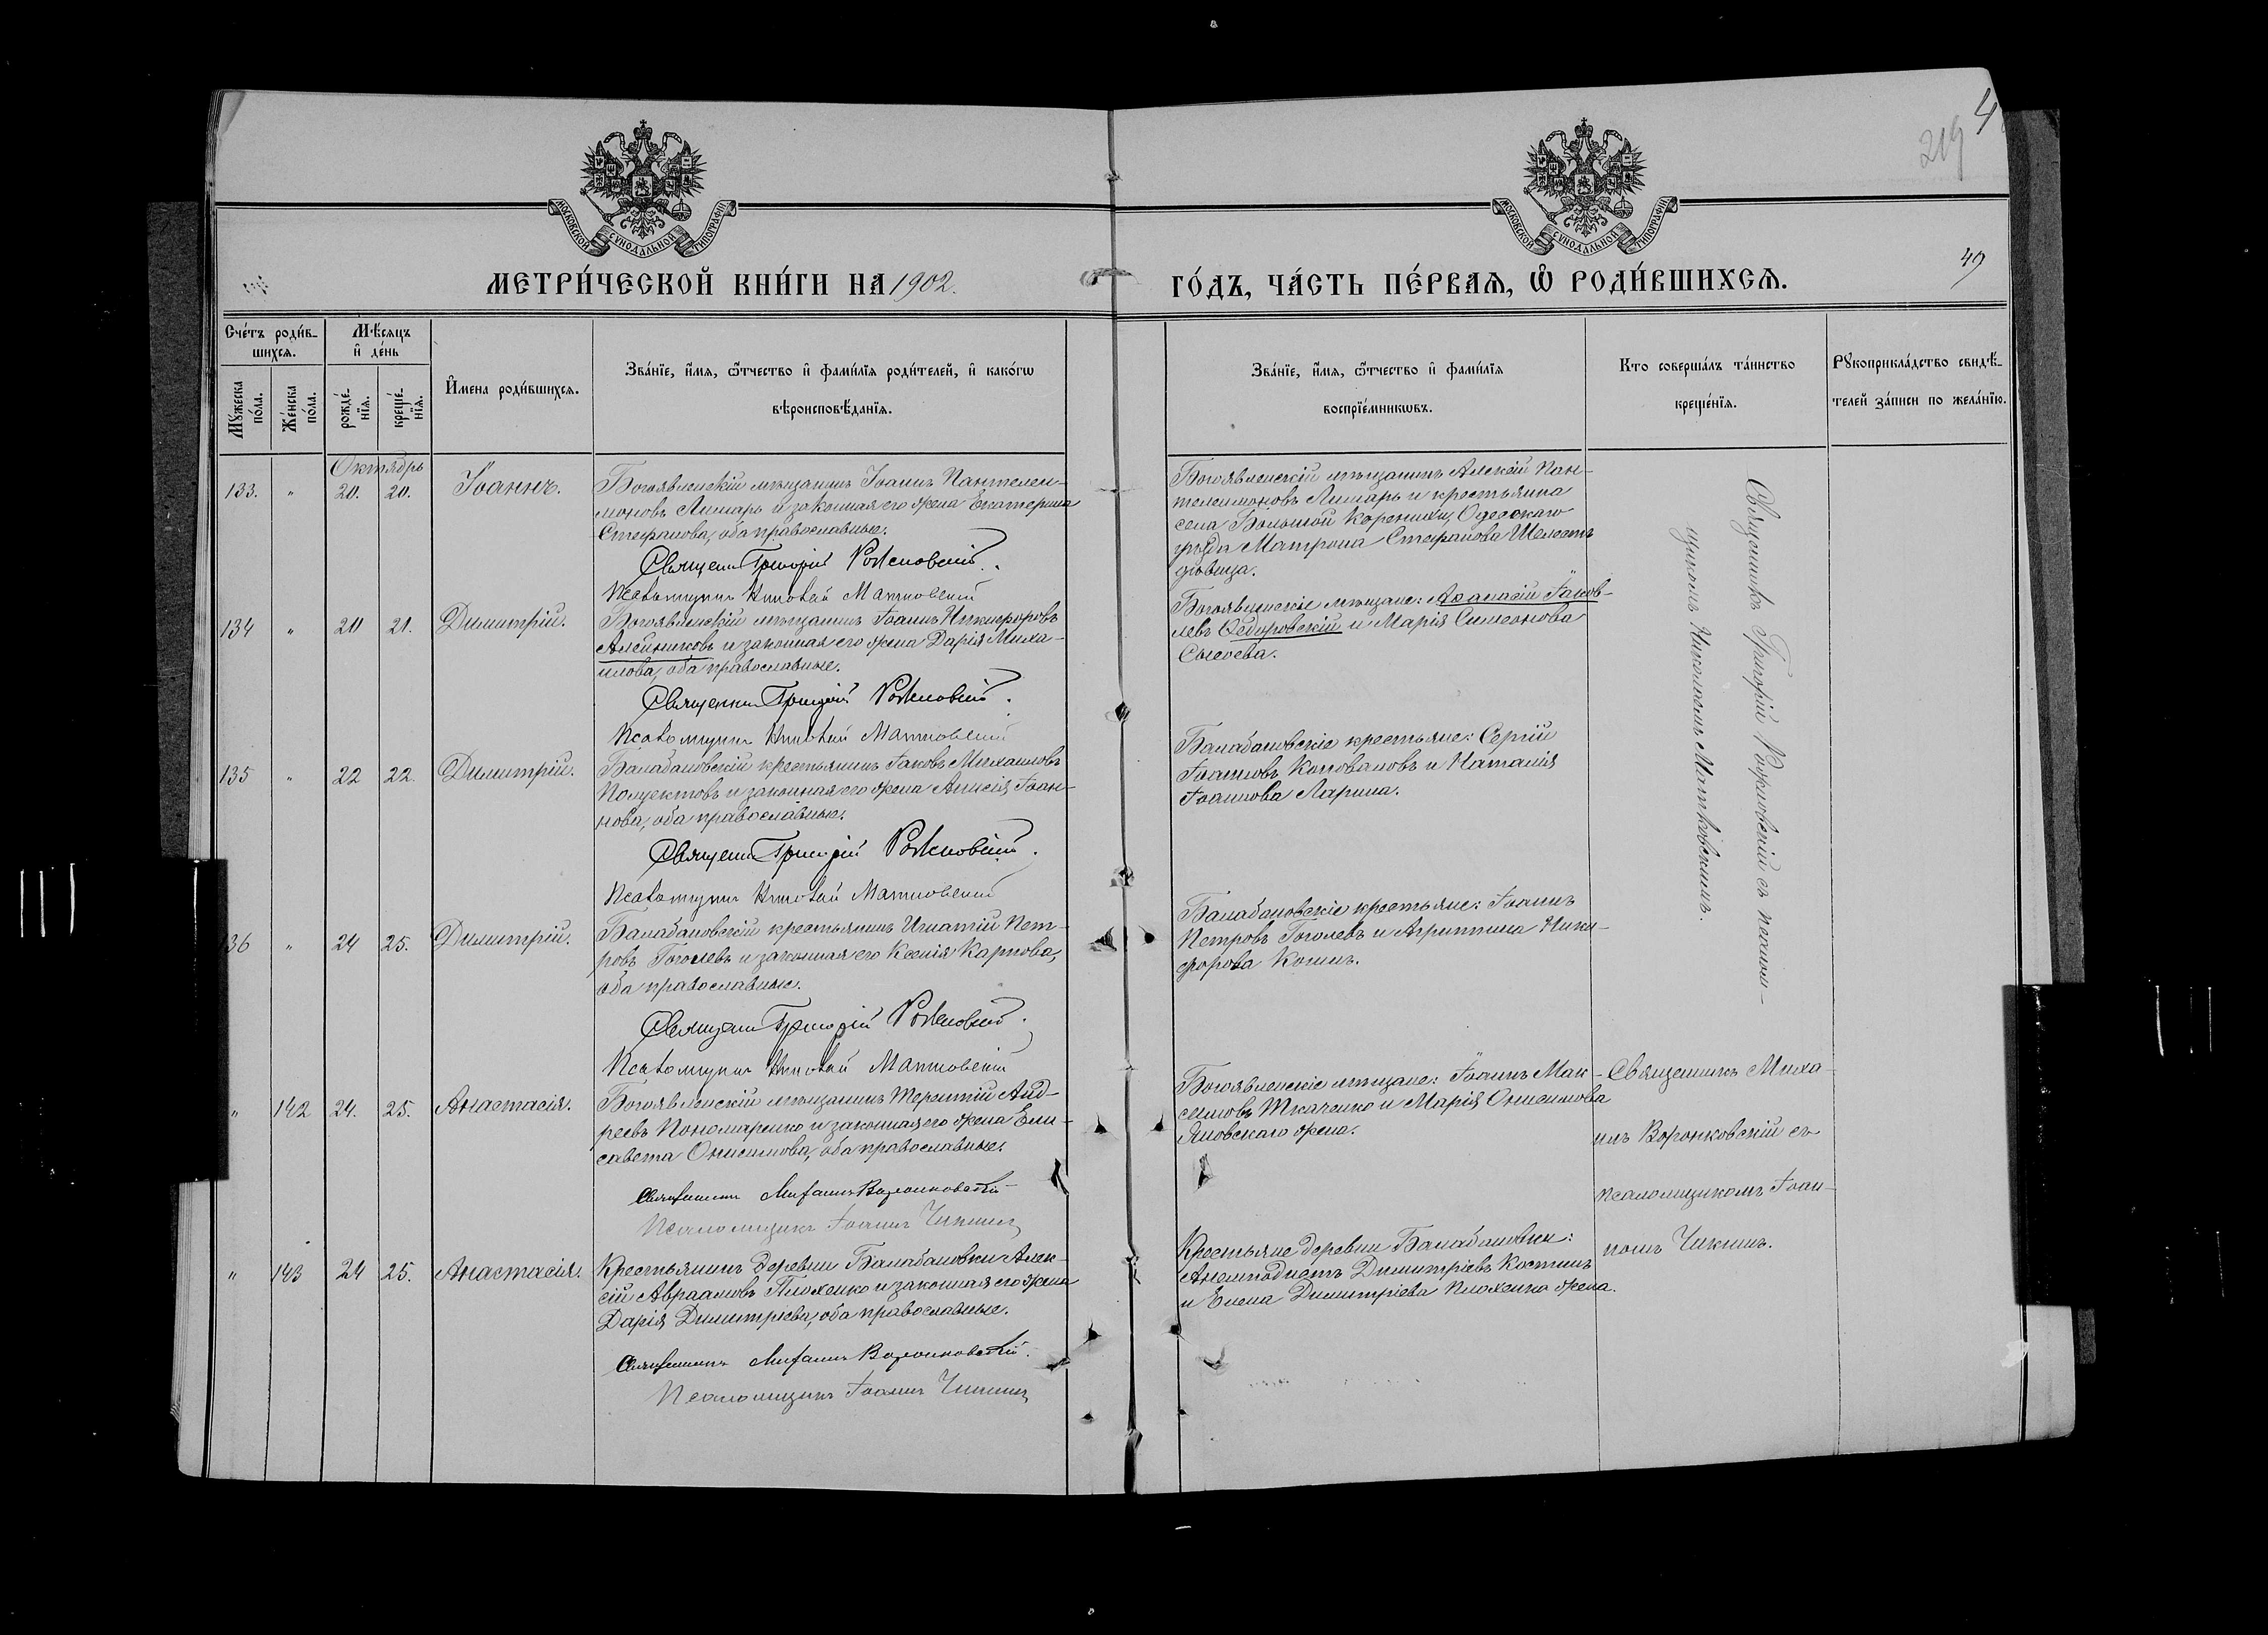 219
4
МОСКОВСКОЙ СѴНОДАЛЬНОЙ ТИПОГРАФІИ
МОСКОВСКОЙ СѴНОДАЛЬНОЙ ТИПОГРАФІИ
49
МЕТРИ́ЧЕСКОЙ КНИ́ГИ НА 1902.
ГО́ДЪ, ЧА́СТЬ ПЕ́РВАѦ, Ѽ РОДИ́ВШИХСѦ.
Сче́тъ роди́в-
шихсѧ.
Мꙋ́жеска
по́ла.
Же́нска
по́ла.
Мѣ́сѧцъ
и҆ де́нь
рожде́-
нїѧ.
креще́-
нїѧ.
И҆мена роди́вшихсѧ.
Зва́нїе, и҆́мѧ, ѻ҆́тчество и҆ фами́лїѧ роди́телей, и҆ како́гѡ
вѣроисповѣ́данїѧ.
Зва́нїе, и҆́мѧ, ѻ҆́тчество и҆ фами́лїѧ
воспрїе́мникѡвъ.
Кто соверша́лъ та́инство
креще́нїѧ.
Рꙋкоприкла́дство свидѣ́-
телей за́писи по жела́нїю.
Октябрь
133. " 20. 20. Іоаннъ.
Богоявленскій мѣщанинъ Іоаннъ Пантелеи-
моновъ Лимарь и законная его жена Екатерина
Стефанова, оба православные.
Священн Григорій Рожновскій.
Псаломщикъ Николай Матковскій
Богоявленскій мѣщанинъ Алексій Пан-
телеимоновъ Лимарь и крестьянка
села Большой Коренихи, Одесскаго
уѣзда Матрона Стефанова Шелестъ
дѣвица.
134 " 20 21. Димитрій.
Богоявленскій мѣщанинъ Іоаннъ Никифоровъ
Алейниковъ и законная его жена Дарія Миха-
илова, оба православные.
Священник Григорій Рожновскій.
Псаломщикъ Николай Матковскій
Богоявленскіе мѣщане: Аѳанасій Іаков-
левъ Ѳедоровскій и Марія Симеонова
Сысоева.
135 " 22 22. Димитрій.
Балабановскій крестьянинъ Іаковъ Михаиловъ
Полуектовъ и законная его жена Анисія Іоан-
нова, оба православные.
Священн Григорій Рожновскій.
Псаломщикъ Николай Матковскій
Балабановскіе крестьяне: Сергій
Іоанновъ Коноваловъ и Наталія
Іоаннова Ларина.
136 " 24 25. Димитрій.
Балабановскій крестьянинъ Игнатій Пет-
ровъ Гоголевъ и законная его Ксенія Карпова,
оба православные.
Священн Григорій Рожновскій.
Псаломщикъ Николай Матковскій
Балабановскіе крестьяне: Іоаннъ
Петровъ Гоголевъ и Агриппина Ники-
форова Кошинъ.
Священникъ Григорій Рожновскій съ псалом-
щикомъ Николаемъ Матковскимъ.
" 142 24. 25. Анастасія.
Богоявленскій мѣщанинъ Терентій Анд-
реевъ Пономаренко и законная его жена Ели-
савета Онисимова, оба православные.
Священникъ Михаилъ Воронковскій
Псаломщикъ Іоаннъ Чикинъ
Богоявленскіе мѣщане: Іоаннъ Мак-
симовъ Ткаченко и Марія Онисимова
Яновскаго жена.
Священникъ Миха-
илъ Воронковскій съ
псаломщикомъ Іоан-
номъ Чикинъ.
" 143 24 25. Анастасія.
Крестьянинъ деревни Балабановки Алек-
сій Авраамовъ Плохенко и законная его жена
Дарія Димитріева, оба православные.
Священникъ Михаилъ Воронковскій.
Псаломщикъ Іоаннъ Чикинъ
Крестьяне деревни Балабановки:
Анемподистъ Димитріевъ Костинъ
и Елена Димитріева Плохенко жена.